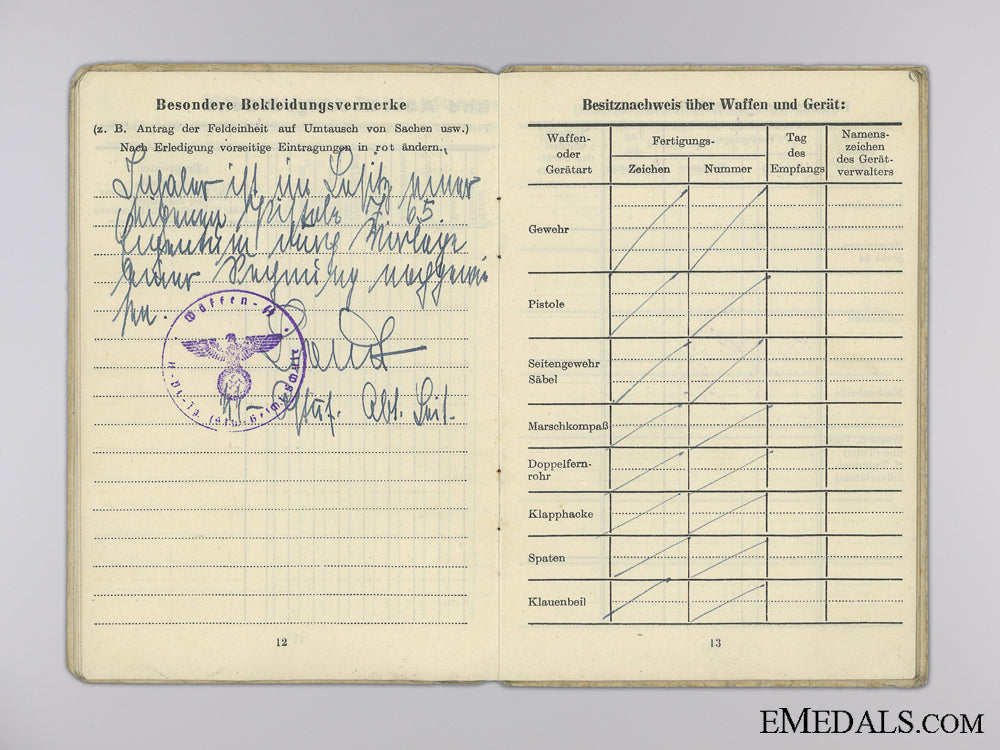 Besondere Bekleidungsvermerke
(z. B. Antrag der Feldeinheit auf Umtausch von Sachen usw.)
Nach Erledigung vorseitige Eintragungen in rot ändern.
Inhaber ist im Besitz einer
eigenen Pistole 7,65.
Eigentum durch Vorlage
einer Rechnung nachgewie
sen.
Waffen-SS
12
Besitznachweis über Waffen und Gerät:
Waffen- oder Gerätart
Fertigungs-
Zeichen
Nummer
Tag des Empfangs
Namens- zeichen des Gerät- verwalters
Gewehr
Pistole
Seitengewehr
Säbel
Marschkompaß
Doppelfern-
rohr
Klapphacke
Spaten
Klauenbeil
13
EMEDALS.COM